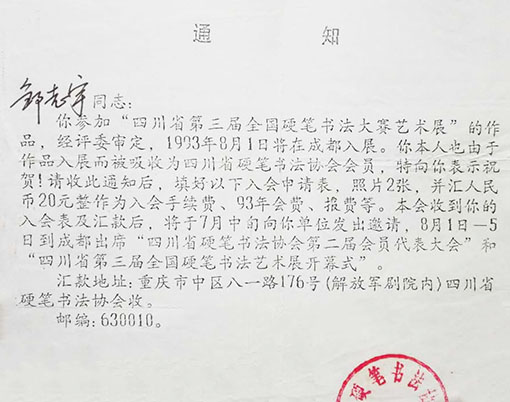 通 知
邹志宇同志:
你参加“四川省第三届全国硬笔书法大赛艺术展”的作
品，经评委审定，1993年8月1日将在成都入展。你本人也由于
作品入展而被吸收为四川省硬笔书法协会会员，特向你表示祝
贺!请收此通知后，填好以下入会申请表，照片2张，并汇人民
币20元整作为入会手续费、93年会费、报费等。本会收到你的
入会表及汇款后，将于7月中旬向你单位发出邀请，8月1日—5
日到成都出席“四川省硬笔书法协会第二届会员代表大会”和
“四川省第三届全国硬笔书法艺术展开幕式”。
汇款地址:重庆市中区八一路176号(解放军剧院内)四川省
硬笔书法协会收。
邮编:630010。
硬笔书法